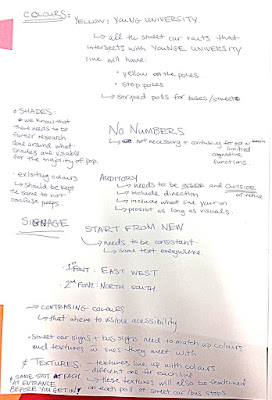 COLOURS: YELLOW: YOUNG UNIVERSITY
↳ all the street car that
intersects with YOUNGE UNIVERSITY
line will have:
• yellow on the poles
• stop poles
↳ striped polls for buses/streets
* SHADES:
* we know that
there needs to be
further research
done around what
shades are visible
for the majority of pop.
• existing colours
↳ should be kept
the same to not
confuse peeps
NO NUMBERS
↳ not necessary + confusing for ppl w/
limited
cognitive
functions.
AUDITORY
↳ needs to be INSIDE and OUTSIDE
↳ include direction of vehicle
↳ include what line your on
↳ present as long as visuals.
SIGNAGE START FROM NEW
↳ needs to be consistant
↳ same text everywhere.
1st FONT: EAST WEST
2nd FONT: NORTH SOUTH
→ CONTRASTING COLOURS
↳ that where to visible accessibility
• Street car signs + bus signs need to match up colours
and textures w lines they meet with
* TEXTURES: - textures line up with colours
- different one for each line
* SAME SPOT AT EACH
AT ENTRANCE
BEFORE YOU GET IN!
↳ these textures will also be
on each poll at street car/bus stops